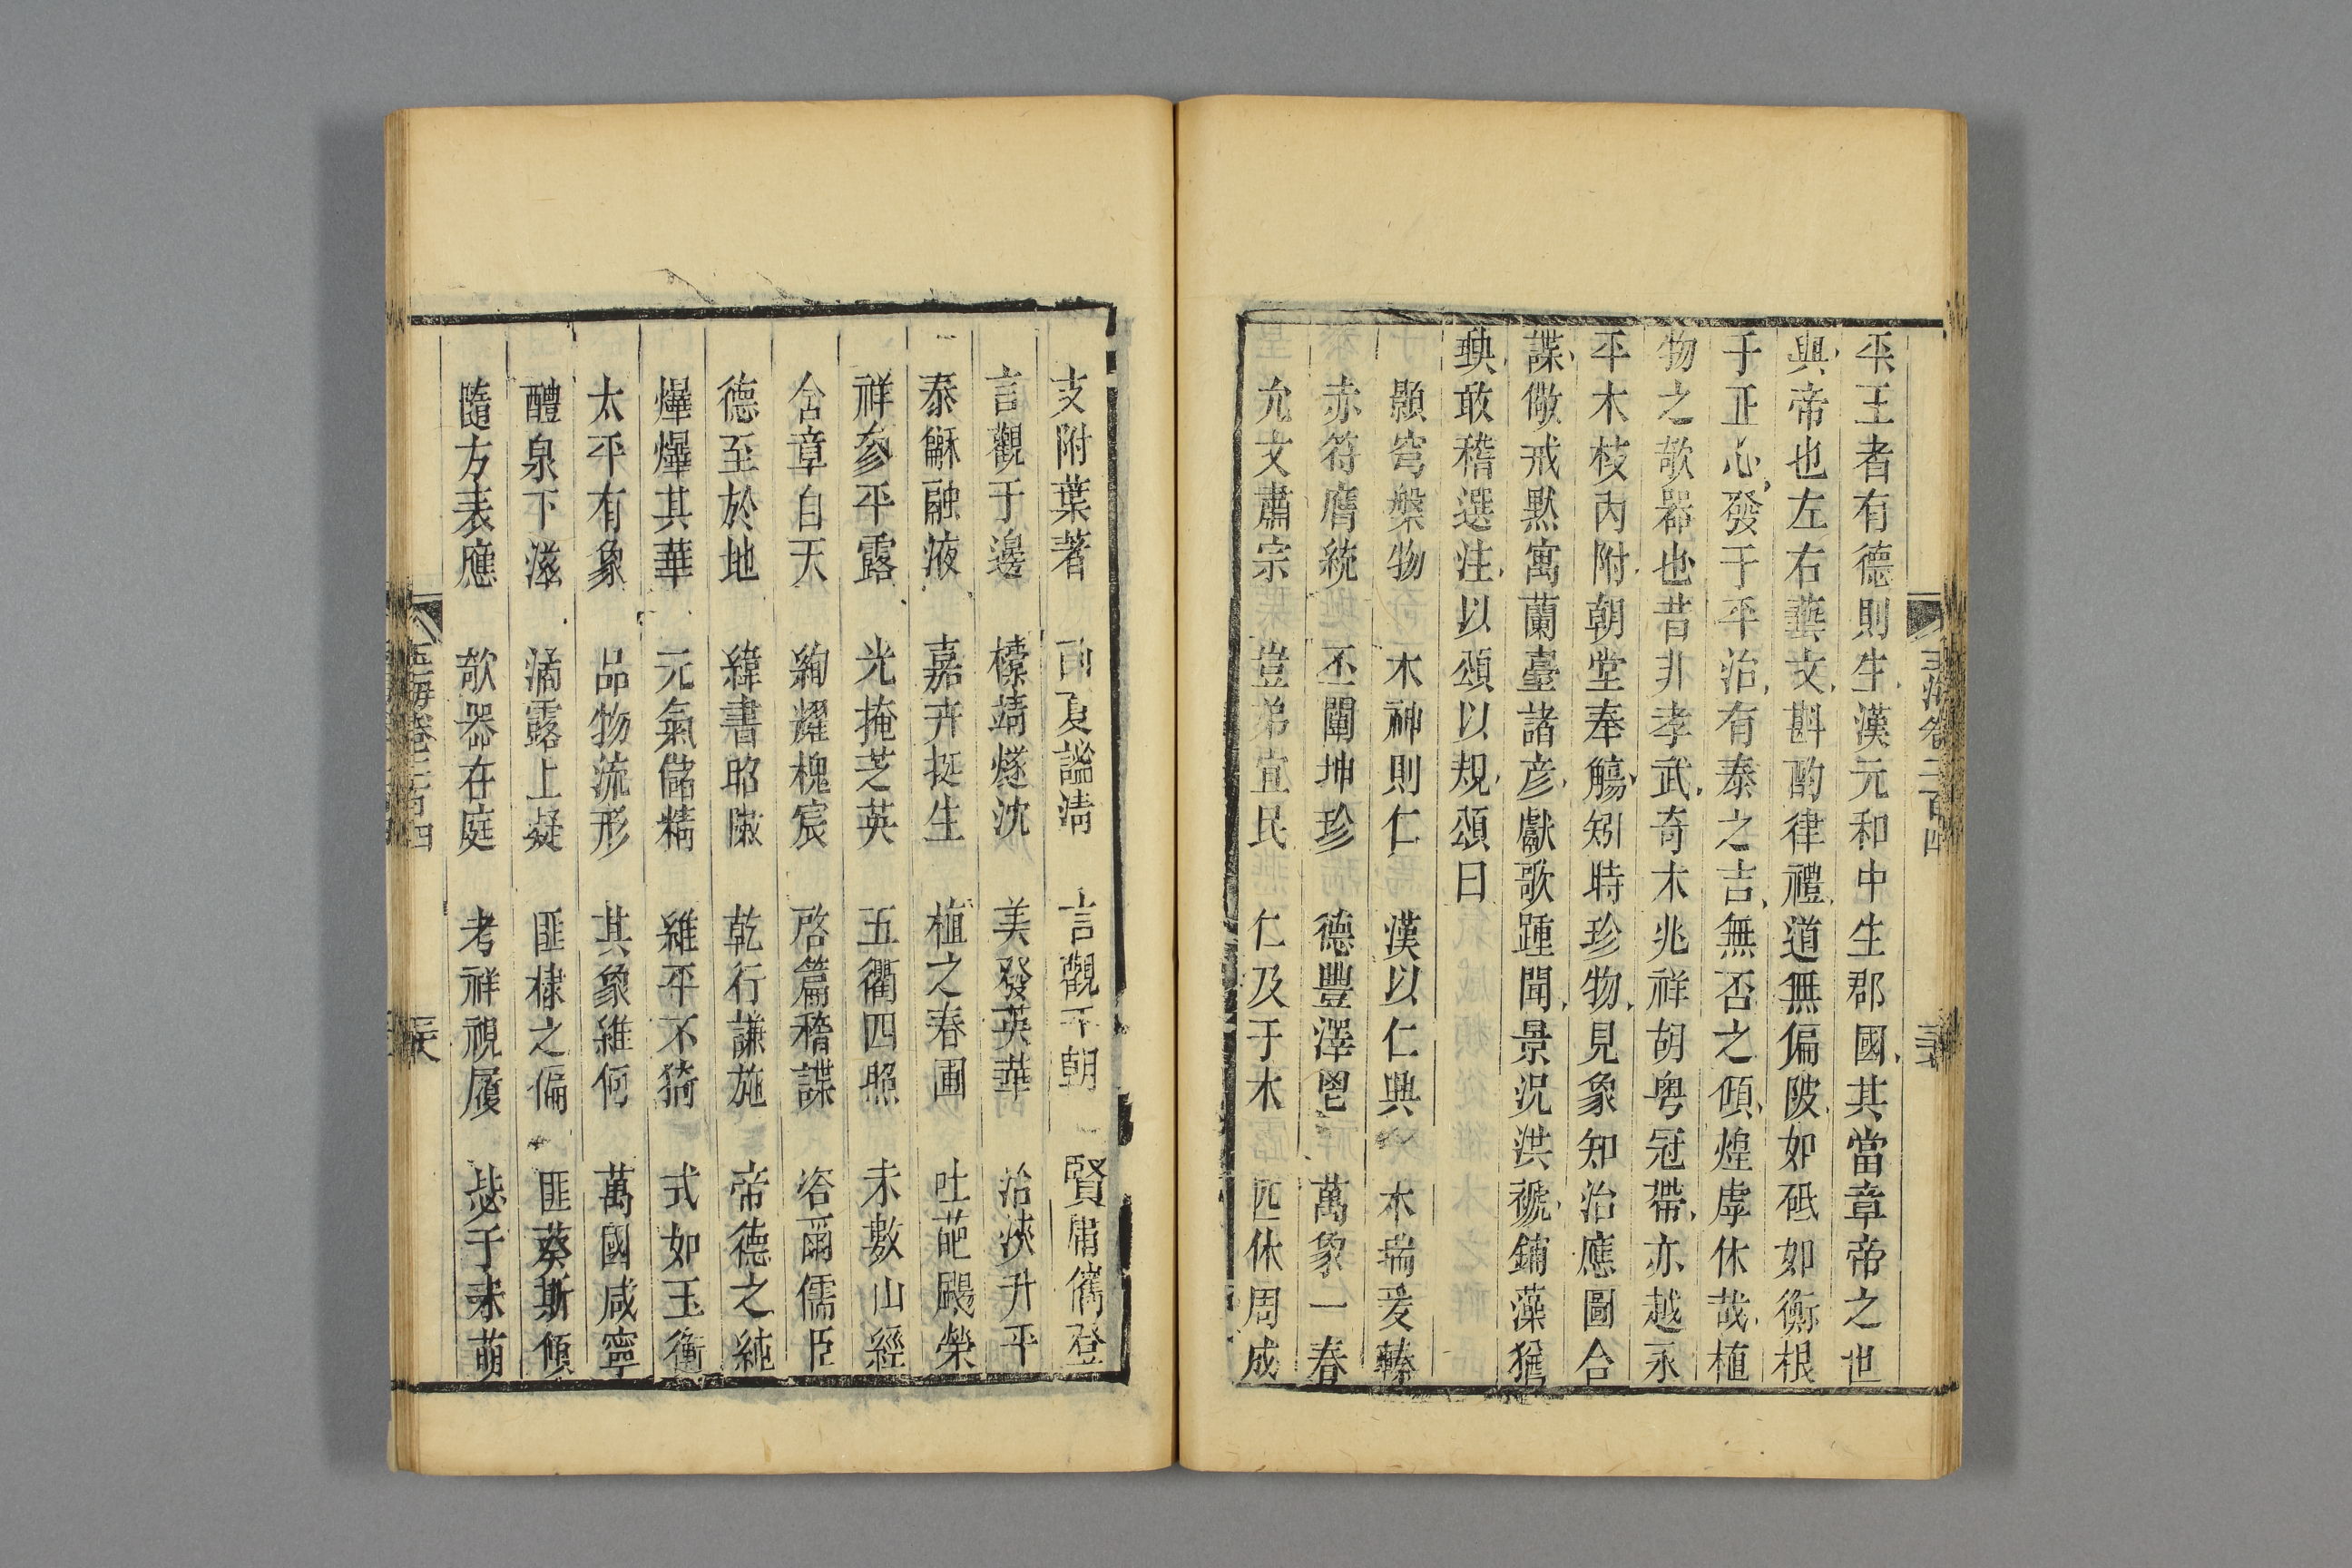 玉海卷二百四
平王者有德則生漢元和中生郡國其當章帝之世
與帝也左右藝文斟酌律禮道無偏陂如砥如衡根
于正心發于平治有泰之吉無否之傾煌虖休哉植
物之欹器也昔非孝武奇木兆祥胡粤冠帶亦越永
平木枝內附朝堂奉觴矧時珍物見象知治應圖合
諜儆戒黙寓蘭臺諸彦獻歌踵聞景況洪禠鋪藻猶
䎦敢稽選注以頌以規頌曰
顥穹槃物 木神則仁 漢以仁興 木瑞爰轃
赤符膺統 丕闡坤珍 德豐澤鬯 萬象一春
允文肅宗 豈弟宜民 仁及于木 匹休周成
支附葉著 函夏謐淸 言觀于朝 賢庸儁登
言觀于邊 櫜靖燧沈 美發英華 治浹升平
泰龢融液 嘉卉挺生 植之春圃 吐葩颺榮
祥參平露 光掩芝英 五衢四照 未數山經
含章自天 絢燿槐宸 啓篇稽諜 咨爾儒臣
德至於地 緯書昭敶 乾行謙施 帝德之純
爗爗其華 元氣儲精 維平不猗 式如玉衡
太平有象 品物流形 其象維何 萬國咸寧
醴泉下滋 滴露上凝 匪棣之偏 匪葵斯傾
隨方表應 欹器在庭 考祥視履 毖于未萌
玉海卷二百四